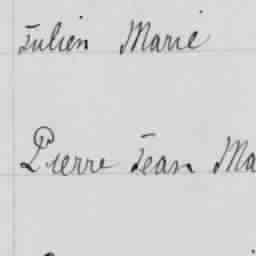 Julien Marie
Pierre Jean Ma